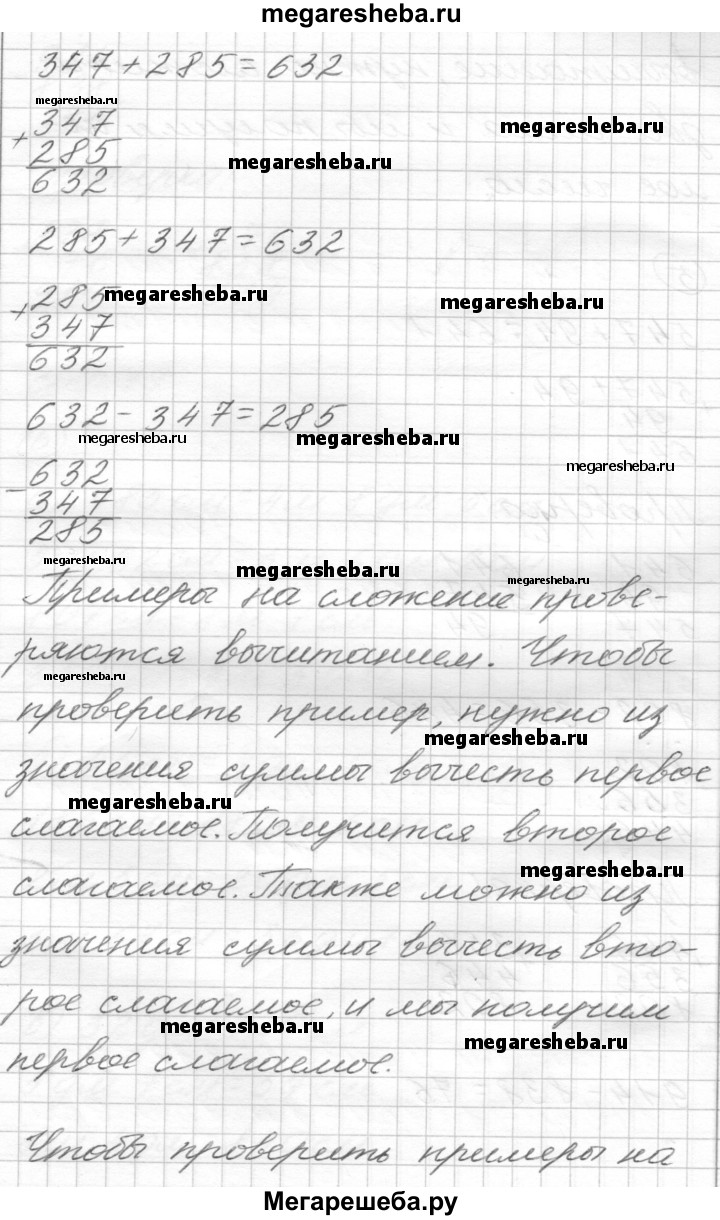 megaresheba.ru
347+285=632
megaresheba.ru
+347
megaresheba.ru
285
megaresheba.ru
632
285+347=632
+285
megaresheba.ru
megaresheba.ru
347
632
632-347=285
megaresheba.ru
megaresheba.ru
632
megaresheba.ru
-
347
285
megaresheba.ru
megaresheba.ru
megaresheba.ru
Примеры на сложение прове-
ряются вычитанием. Чтобы
megaresheba.ru
проверить пример, нужно из
megaresheba.ru
значения суммы вычесть первое
megaresheba.ru
слагаемое. Получится второе
megaresheba.ru
слагаемое. Также можно из
значения суммы вычесть вто-
рое слагаемое, и мы получим
megaresheba.ru
megaresheba.ru
первое слагаемое.
Чтобы проверить примеры на
Мегарешеба.ру